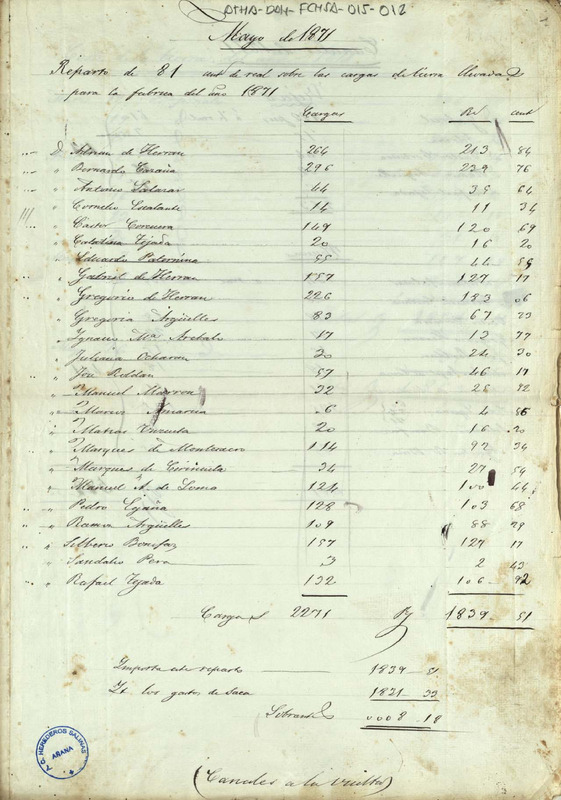 ATHA-DAH-FCHSA-015-012
Mayo de 1871
Reparto de 81 cent de real sobre las cargas de tierra llevadas
para la fabrica del año 1871
Cargas Rs cent
D Adrian de Herran 264 213 84
Bernardo 296 239 76
Antonio Salazar 44 35 64
Cornelio Escalante 14 11 34
Castor Corcuera 149 120 69
Catalina Tejada 20 16 20
Eduardo Paternina 55 44 55
Gabriel de Herran 157 127 17
Gregorio de Herran 226 183 06
Gregoria Argüelles 83 67 23
Ignacio Ma Arebalo 17 13 77
Juliana Ocharan 30 24 30
José Roldan 57 46 17
Manuel Marron 32 25 92
Marcos 6 4 86
Matias 20 16 20
Marques de Montenuevo 114 92 34
Marques de Ciriñuela 34 27 54
Manuel A. de Loma 124 100 44
Pedro 128 103 68
Ramon Argüelles 109 88 29
Silberio Bonifaz 157 127 17
Sandalio Pera 3 2 43
Rafael Tejada 132 106 92
Cargas 2271 Rs 1839 51
Importa este reparto 1839 51
Id los gastos de Saca 1821 33
Sobrante 0008 18
HEREDEROS SALINAS
AÑANA
(Canales a la vuelta)